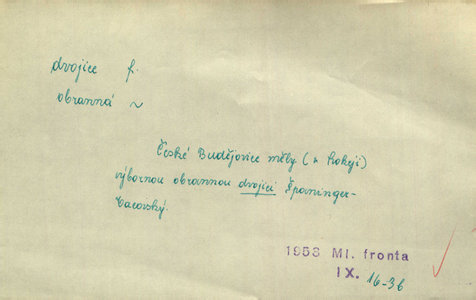 dvojice f.
obranná ~
České Budějovice měly (v hokeji)
výbornou obrannou dvojici Španinger-
Cacovský.
1953 Ml. fronta
IX. 16-36